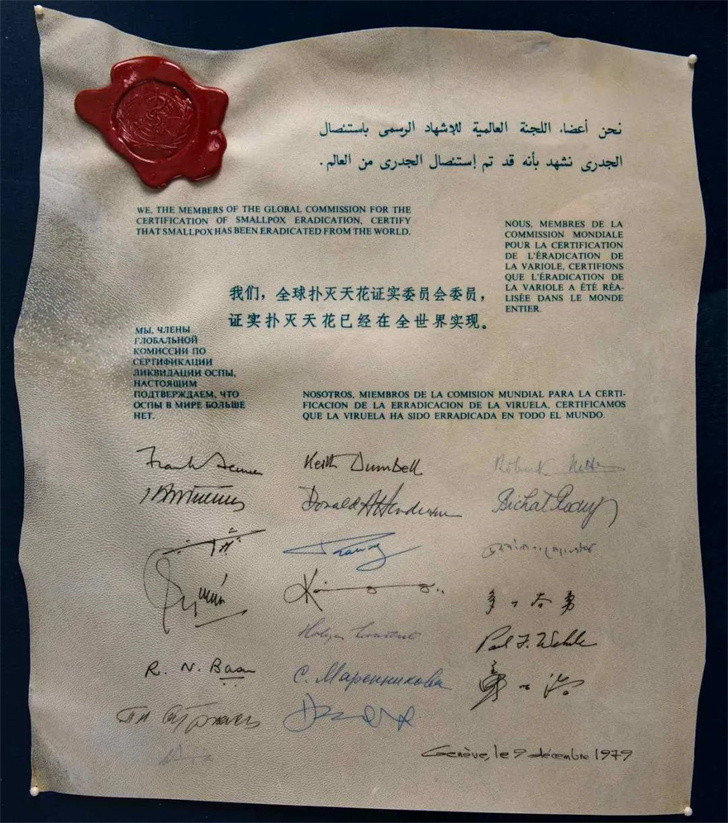 نحن أعضاء اللجنة العالمية للإشهاد الرسمى باستئصال
الجدرى نشهد بأنه قد تم إستئصال الجدرى من العالم.
WE, THE MEMBERS OF THE GLOBAL COMMISSION FOR THE
CERTIFICATION OF SMALLPOX ERADICATION, CERTIFY
THAT SMALLPOX HAS BEEN ERADICATED FROM THE WORLD.
NOUS, MEMBRES DE LA
COMMISSION MONDIALE
POUR LA CERTIFICATION
DE L'ÉRADICATION DE
LA VARIOLE, CERTIFIONS
QUE L'ÉRADICATION DE
LA VARIOLE A ÉTÉ RÉA-
LISÉE DANS LE MONDE
ENTIER.
我们，全球扑灭天花证实委员会委员，
证实扑灭天花已经在全世界实现。
МЫ, ЧЛЕНЫ
ГЛОБАЛЬНОЙ
КОМИССИИ ПО
СЕРТИФИКАЦИИ
ЛИКВИДАЦИИ ОСПЫ,
НАСТОЯЩИМ
ПОДТВЕРЖДАЕМ, ЧТО
ОСПЫ В МИРЕ БОЛЬШЕ
НЕТ.
NOSOTROS, MIEMBROS DE LA COMISION MUNDIAL PARA LA CERTI-
FICACION DE LA ERRADICACION DE LA VIRUELA, CERTIFICAMOS
QUE LA VIRUELA HA SIDO ERRADICADA EN TODO EL MUNDO.
Frank Fenner
Keith Dumbell
Donald A Henderson
Paul F. Wehrle
R. N. Basu
С. Маренникова
Genève, le 9 décembre 1979